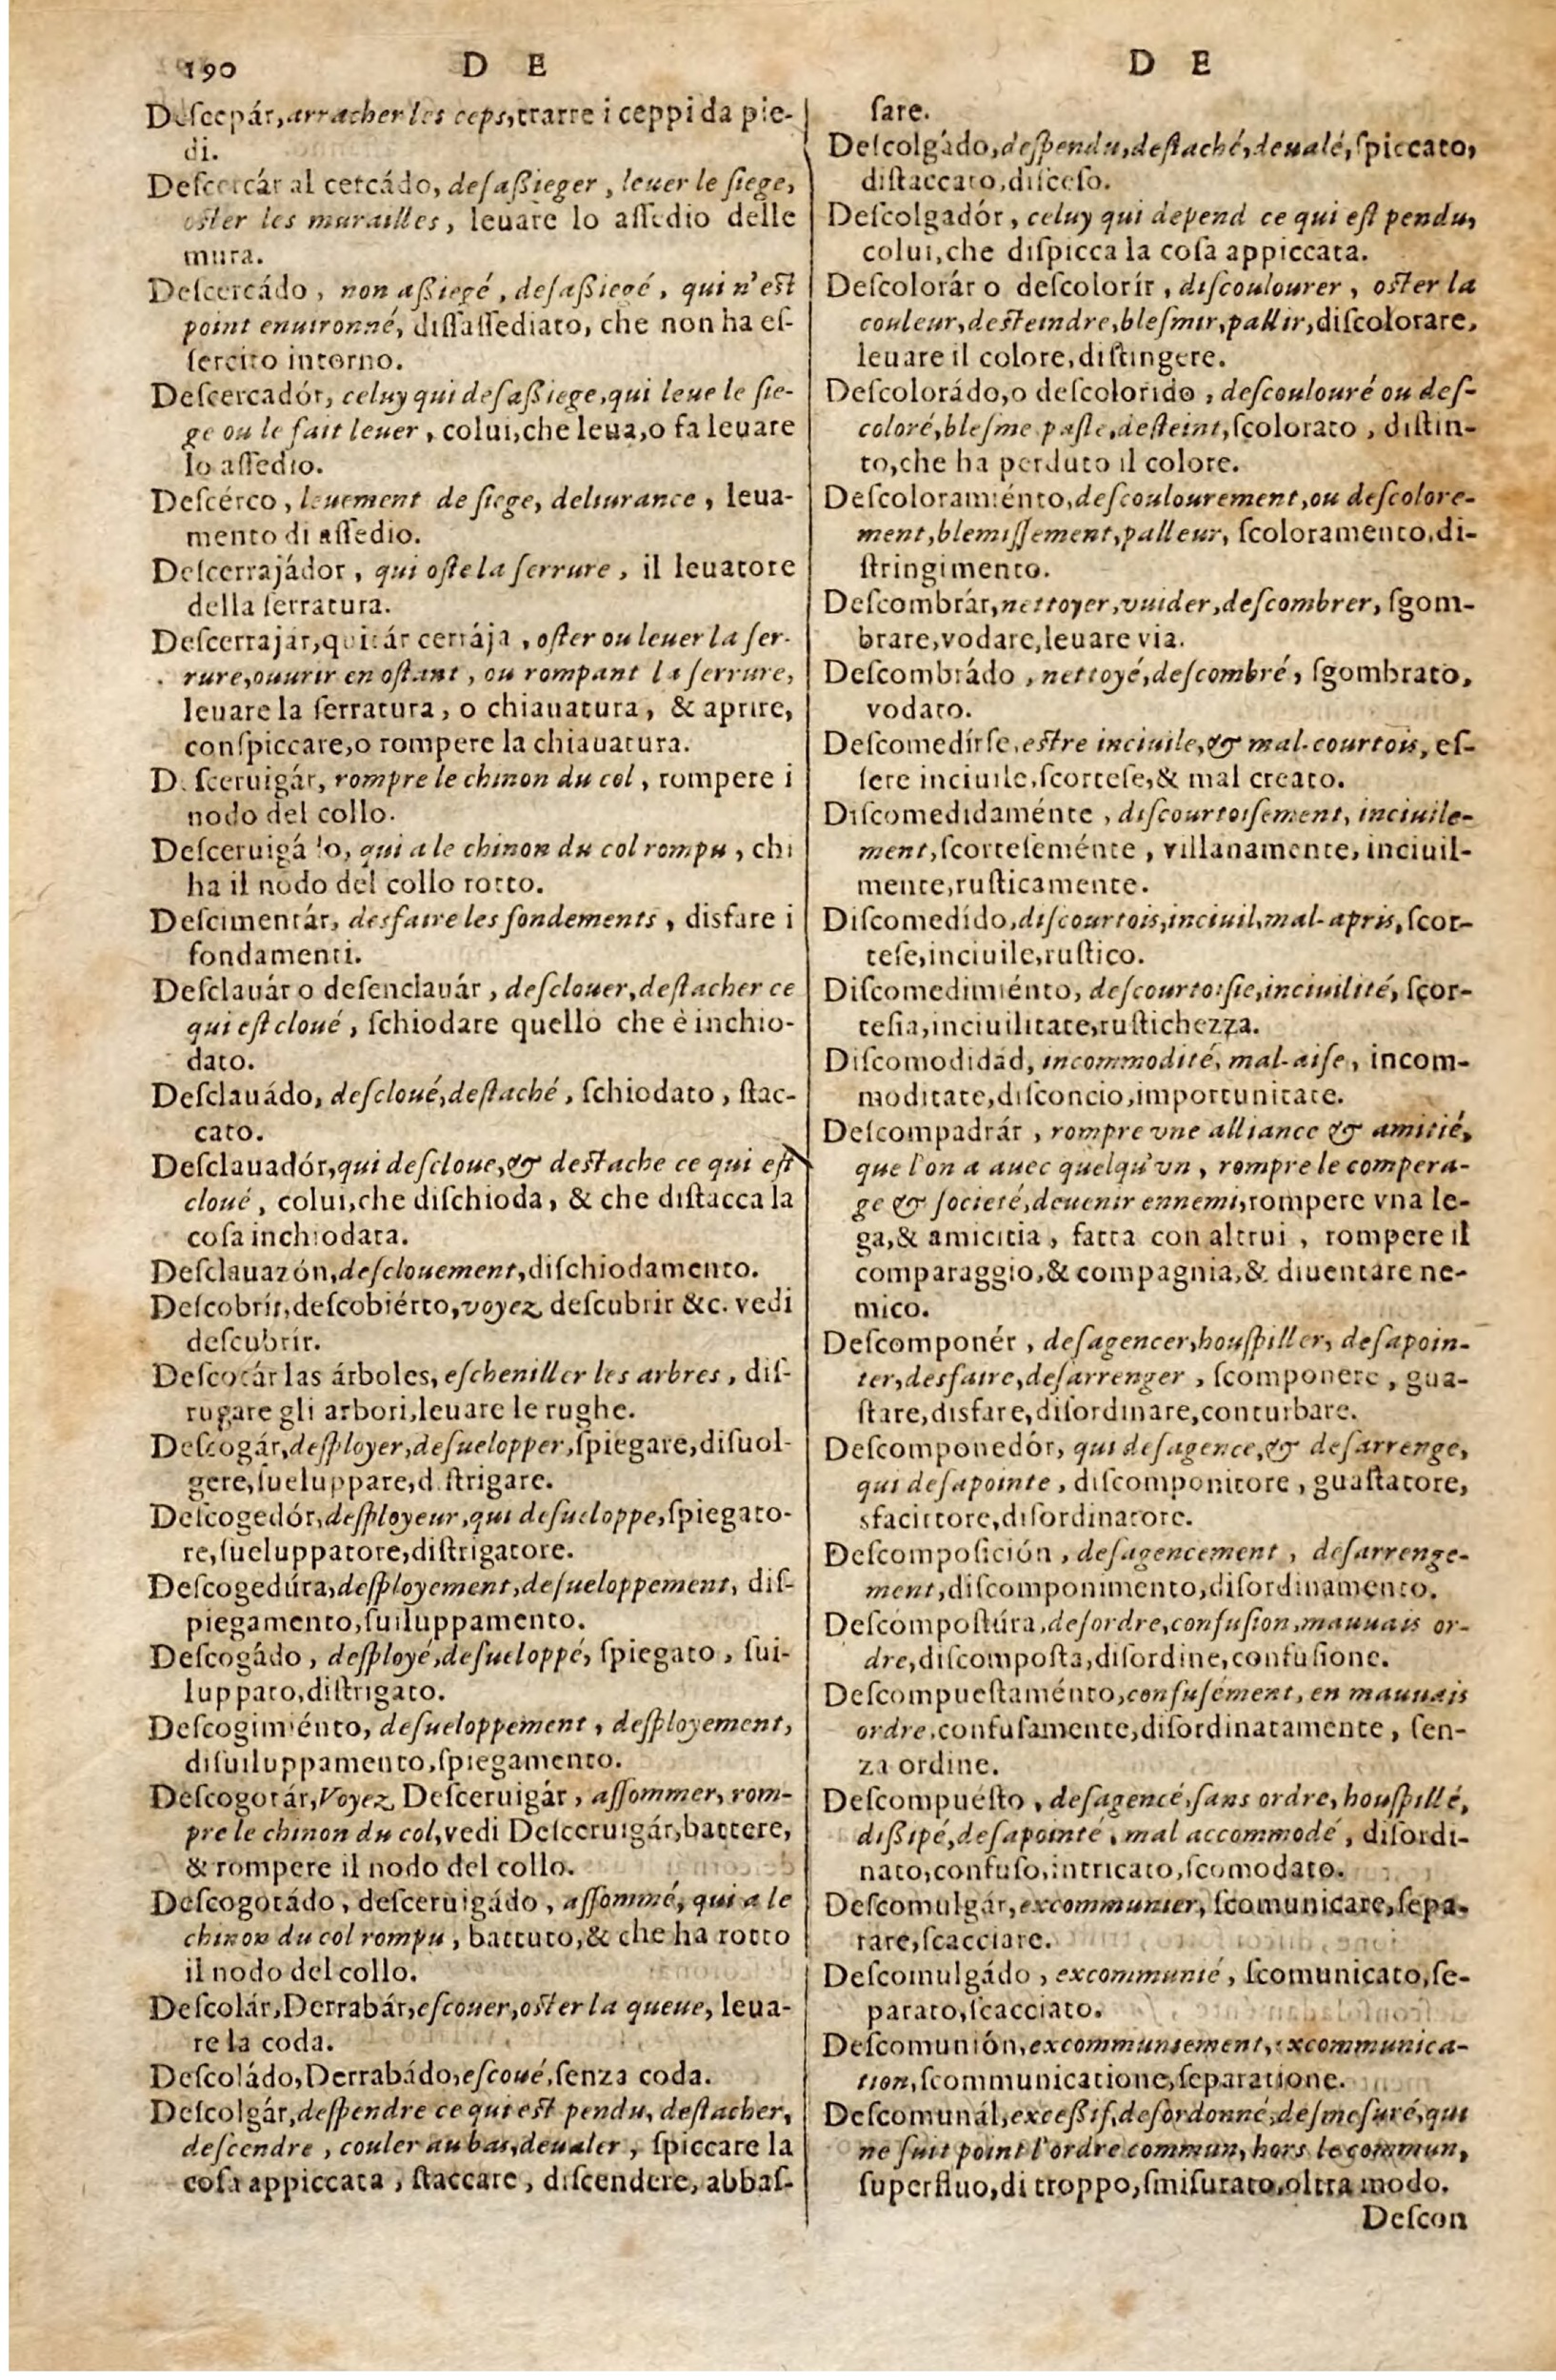 190 D E
Deſcepár, arracher les ceps, trarre i ceppi da pie-
di.
Deſcercár al cercádo, deſaßieger, leuer le ſiege,
oſter les murailles, leuare lo aſſedio delle
mura.
Deſcercádo, non aßiegé, deſaßiegé, qui n'eſt
point enuironné, diſſaſſediato, che non ha eſ-
ſercito intorno.
Deſcercadór, celuy qui deſaßiege, qui leue le ſie-
ge ou le fait leuer, colui, che leua, o fa leuare
lo aſſedio.
Deſcérco, leuement de ſiege, deliurance, leua-
mento di aſſedio.
Deſcerrajádor, qui oſte la ſerrure, il leuatore
della ſerratura.
Deſcerrajár, quitár cerrája, oſter ou leuer la ſer-
rure, ouurir en oſtant, ou rompant la ſerrure,
leuare la ſerratura, o chiauatura, & aprire,
conſpiccare, o rompere la chiauatura.
D ſceruigár, rompre le chinon du col, rompere i
nodo del collo.
Deſceruigá o, qui a le chinon du col rompu, chi
ha il nodo del collo rotto.
Deſcimentár, desfaire les fondements, disfare i
fondamenti.
Deſclauár o deſenclauár, deſclouer, deſtacher ce
qui eſt cloué, ſchiodare quello che è inchio-
dato.
Deſclauádo, deſcloué, deſtaché, ſchiodato, ſtac-
cato.
Deſclauadór, qui deſcloue, & deſtache ce qui eſt
cloué, colui, che diſchioda, & che diſtacca la
coſa inchiodata.
Deſclauazón, deſclouement, diſchiodamento.
Deſcobrír, deſcobiérto, voyez deſcubrir &c. vedi
deſcubrír.
Deſcocár las árboles, eſcheniller les arbres, diſ-
rugare gli arbori, leuare le rughe.
Deſcogár, deſployer, deſuelopper, ſpiegare, diſuol-
gere, ſueluppare, d ſtrigare.
Deſcogedór, deſployeur, qui deſueloppe, ſpiegato-
re, ſueluppatore, diſtrigatore.
Deſcogedúra, deſployement, deſueloppement, diſ-
piegamento, ſuiluppamento.
Deſcogádo, deſployé, deſueloppé, ſpiegato, ſui-
luppato, diſtrigato.
Deſcogimiénto, deſueloppement, deſployement,
diſuiluppamento, ſpiegamento.
Deſcogotár, Voyez Deſceruigár, aſſommer, rom-
pre le chinon du col, vedi Deſceruigár, battere,
& rompere il nodo del collo.
Deſcogotádo, deſceruigádo, aſſommé, qui a le
chinon du col rompu, battuto, & che ha rotto
il nodo del collo.
Deſcolár, Derrabár, eſcouer, oſter la queue, leua-
re la coda.
Deſcoládo, Derrabádo, eſcoué, ſenza coda.
Deſcolgár, deſpendre ce qui eſt pendu, deſtacher,
deſcendre, couler au bas, deualer, ſpiccare la
coſa appiccata, ſtaccare, diſcendere, abbaſ-
D E
ſare.
Deſcolgádo, deſpendu, deſtaché, deualé, ſpiccato,
diſtaccato, diſceſo.
Deſcolgadór, celuy qui depend ce qui eſt pendu,
colui, che diſpicca la coſa appiccata.
Deſcolorár o deſcolorír, diſcoulourer, oſter la
couleur, deſteindre, bleſmir, pallir, diſcolorare,
leuare il colore, diſtingere.
Deſcolorádo, o deſcolorido, deſcoulouré ou deſ-
coloré, bleſme paſle, deſteint, ſcolorato, diſtin-
to, che ha perduto il colore.
Deſcoloramiénto, deſcoulourement, ou deſcolore-
ment, blemiſſement, palleur, ſcoloramento, di-
ſtringimento.
Deſcombrár, nettoyer, vuider, deſcombrer, ſgom-
brare, vodare, leuare via.
Deſcombrádo, nettoyé, deſcombré, ſgombrato,
vodato.
Deſcomedírſe, eſtre inciuile, & mal-courtois, eſ-
ſere inciuile, ſcorteſe, & mal creato.
Diſcomedidaménte, diſcourtoiſement, inciuile-
ment, ſcorteſeménte, villanamente, inciuil-
mente, ruſticamente.
Diſcomedído, diſcourtois, inciuil, mal-apris, ſcor-
teſe, inciuile, ruſtico.
Diſcomedimiénto, deſcourtoiſie, inciuilité, ſcor-
teſia, inciuilitate, ruſtichezza.
Diſcomodidád, incommodité, mal-aiſe, incom-
moditate, diſconcio, importunitate.
Deſcompadrár, rompre vne alliance & amitié,
que l'on a auec quelqu'vn, rompre le compera-
ge & ſocieté, deuenir ennemi, rompere vna le-
ga, & amicitia, fatta con altrui, rompere il
comparaggio, & compagnia, & diuentare ne-
mico.
Deſcomponér, deſagencer, houſpiller, deſapoin-
ter, desfaire, deſarrenger, ſcomponere, gua-
ſtare, disfare, diſordinare, conturbare.
Deſcomponedór, qui deſagence, & deſarrenge,
qui deſapointe, diſcomponitore, guaſtatore,
sfacittore, diſordinatore.
Deſcompoſición, deſagencement, deſarrenge-
ment, diſcomponimento, diſordinamento.
Deſcompoſtúra, deſordre, confuſion, mauuais or-
dre, diſcompoſta, diſordine, confuſione.
Deſcompueſtaménto, confuſément, en mauuais
ordre, confuſamente, diſordinatamente, ſen-
za ordine.
Deſcompuéſto, deſagencé, ſans ordre, houſpillé,
dißipé, deſapointé, mal accommodé, diſordi-
nato, confuſo, intricato, ſcomodato.
Deſcomulgár, excommunier, ſcomunicare, ſepa-
rare, ſcacciare.
Deſcomulgádo, excommunié, ſcomunicato, ſe-
parato, ſcacciato.
Deſcomunión, excommuniement, excommunica-
tion, ſcommunicatione, ſeparatione.
Deſcomunál, exceßif, deſordonné, deſmeſuré, qui
ne ſuit point l'ordre commun, hors le commun,
ſuperfluo, di troppo, ſmiſurato, oltra modo.
Deſcon